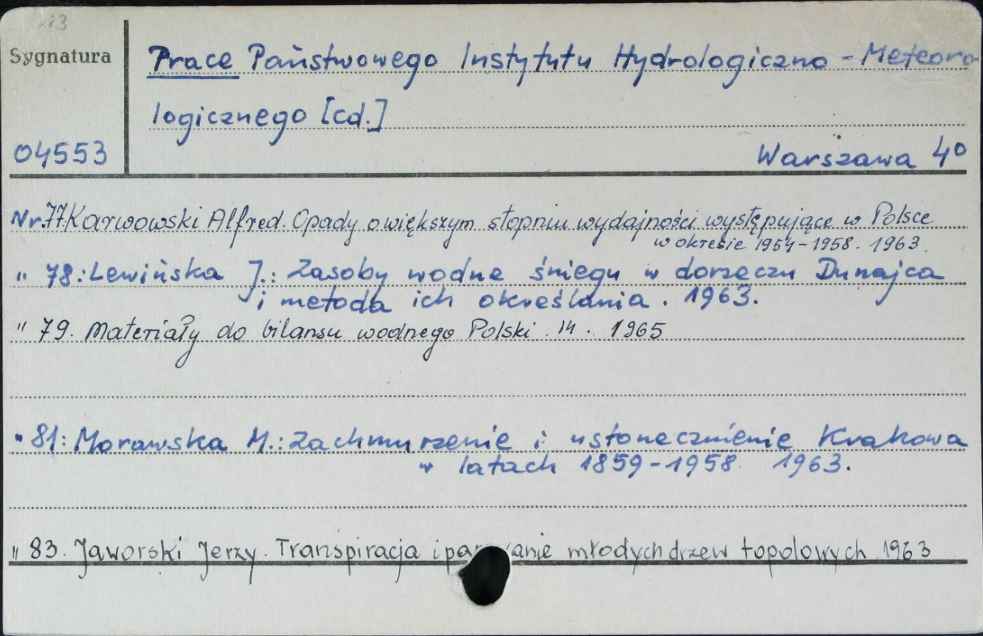 Sygnatura
Prace Państwowego Instytutu Hydrologiczno - Meteoro
logicznego [cd.]
04553
Warszawa 4º
Nr. 77. Karwowski Alfred. Opady o większym stopniu wydajności występujące w Polsce
w okresie 1954-1958. 1963.
" 78: Lewińska J.: Zasoby wodne śniegu w dorzeczu Dunajca
i metoda ich określania. 1963.
" 79. Materiały do bilansu wodnego Polski. 14. 1965
" 81: Morawska M.: Zachmurzenie i usłonecznienie Krakowa
w latach 1859-1958. 1963.
" 83. Jaworski Jerzy. Transpiracja i młodych drzew topolowych 1963